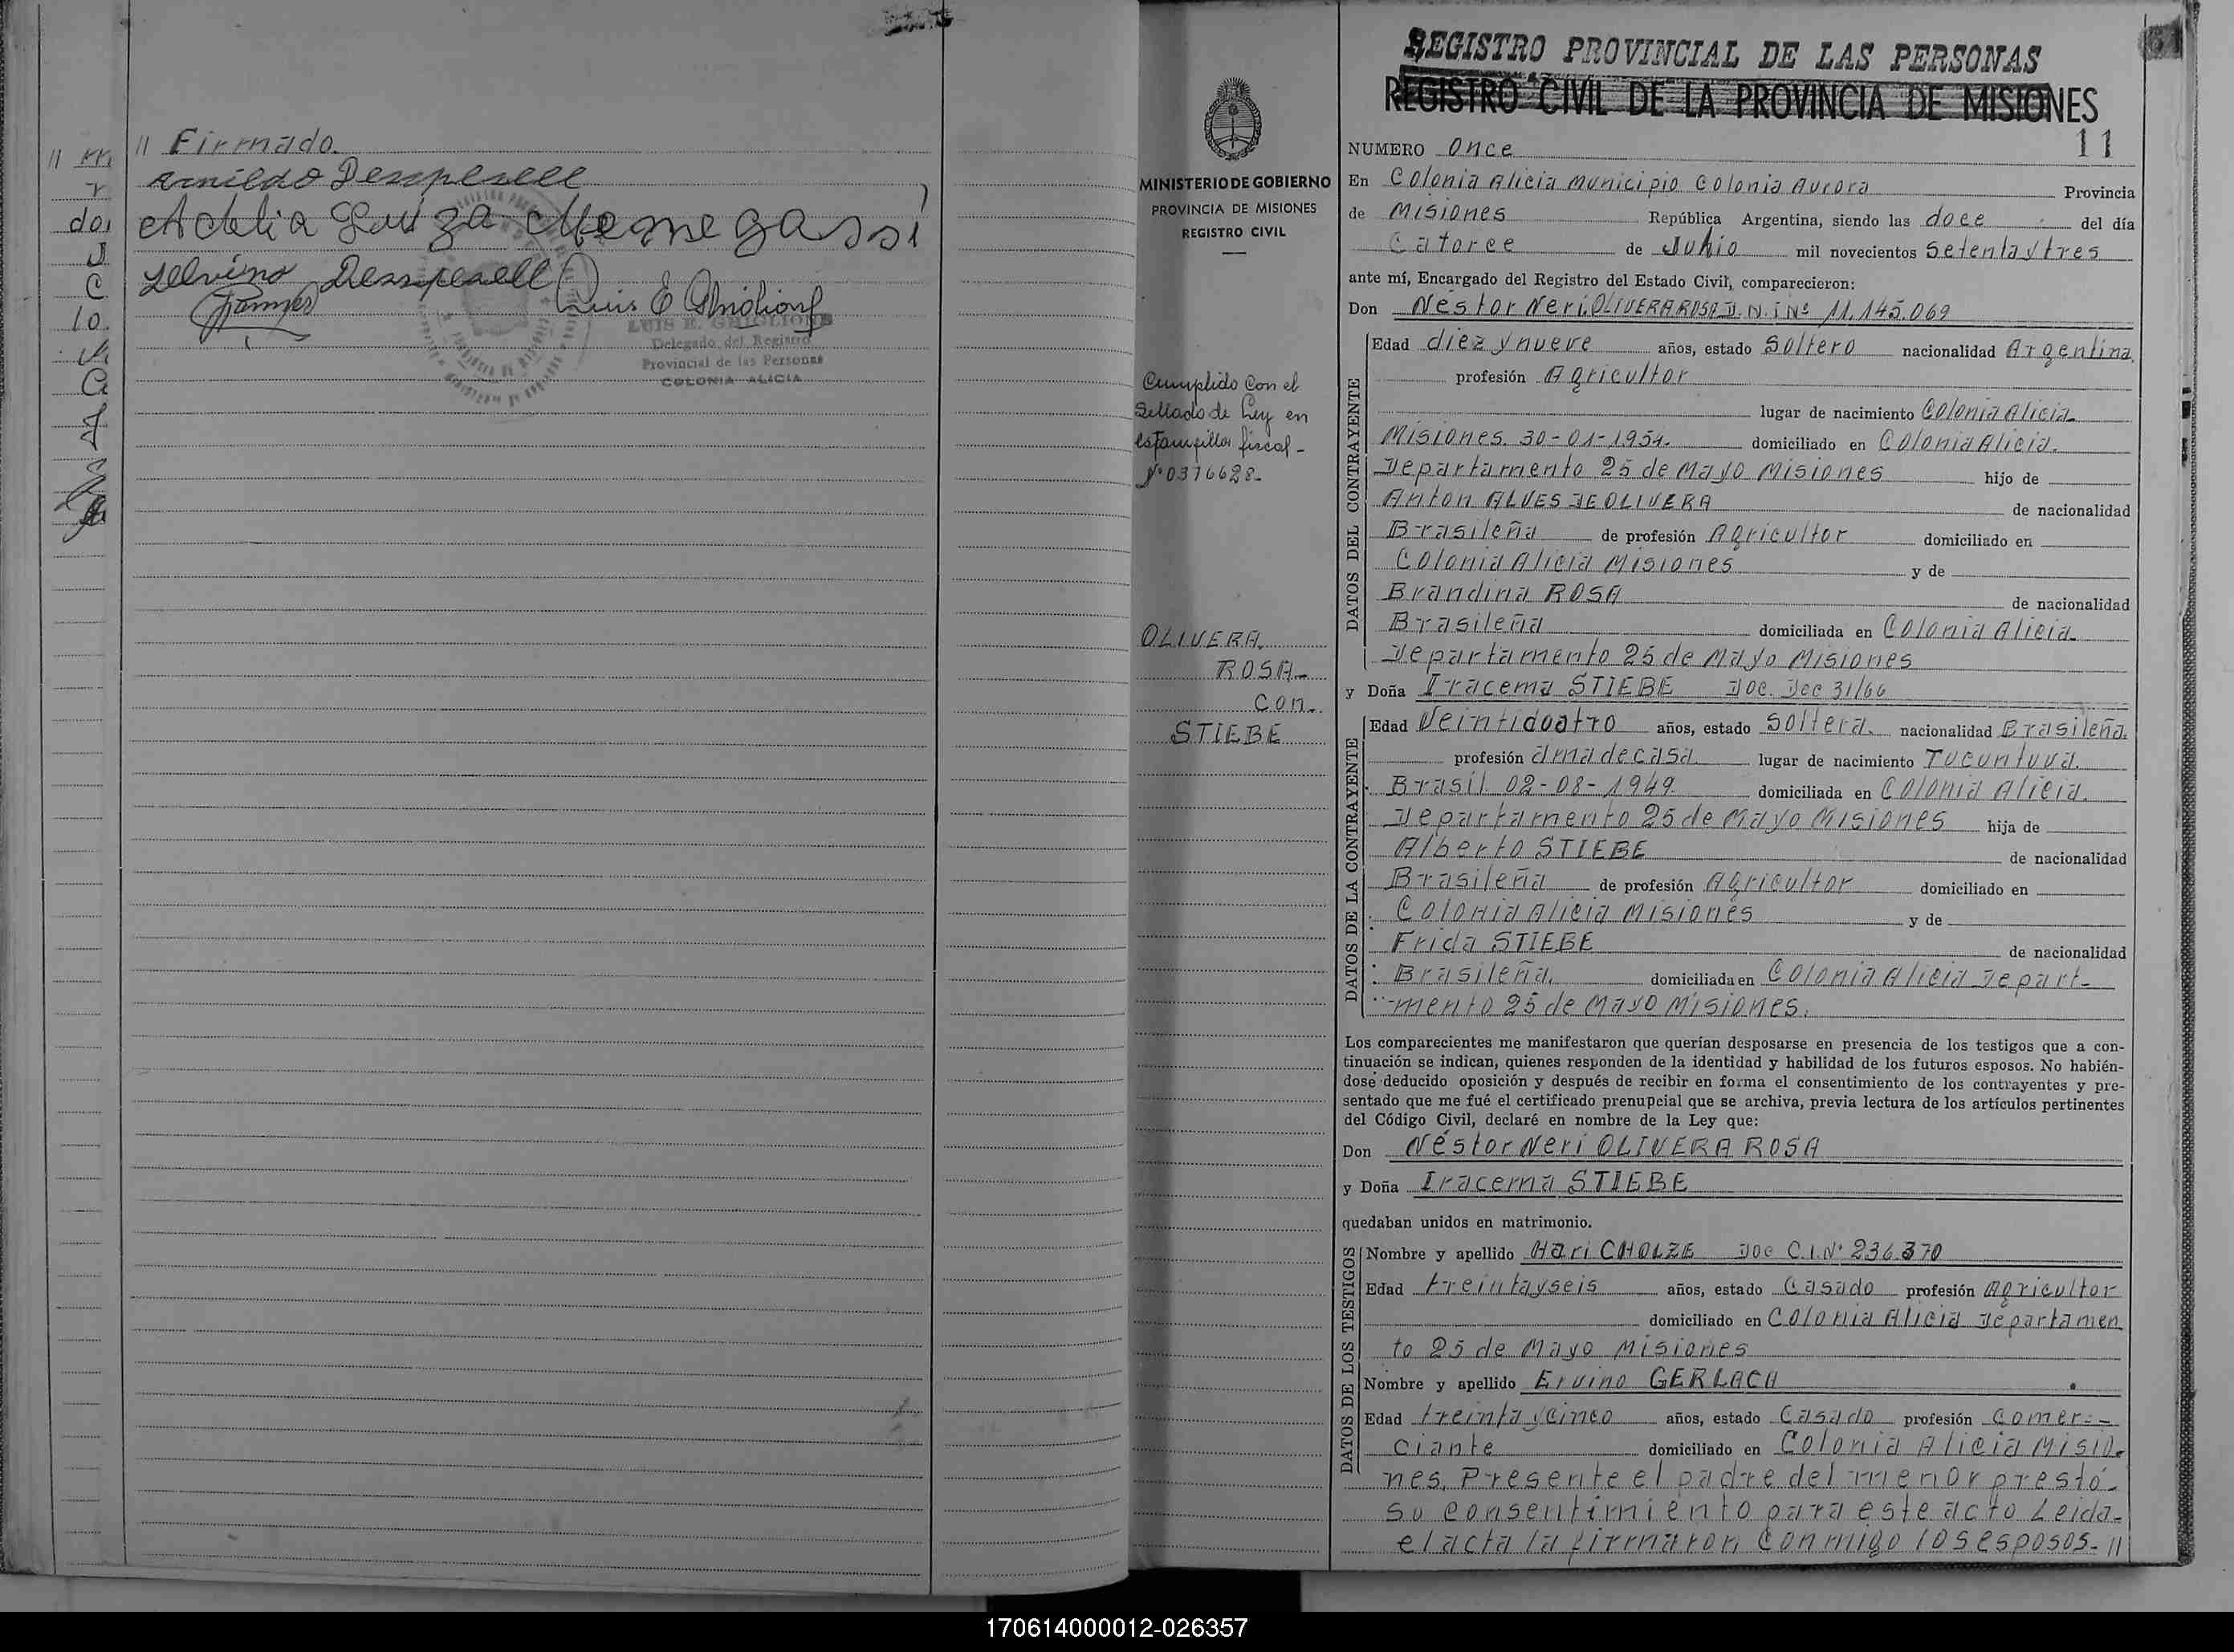 // Firmado.
Adelia Luiza Menegassi
Luis E Ghiglione
LUIS E. GHIGLIONE
Delegado del Registro
Provincial de las Personas
COLONIA ALICIA
REGISTRO PROVINCIAL DE LAS PERSONAS
REGISTRO CIVIL DE LA PROVINCIA DE MISIONES
11
MINISTERIO DE GOBIERNO
PROVINCIA DE MISIONES
REGISTRO CIVIL
Cumplido con el
Sellado de Ley en
estampillas fiscal-
Nº 0376628-
OLIVERA
ROSA-
con-
STIEBE
NUMERO Once
En Colonia Alicia Municipio Colonia Aurora Provincia
de Misiones República Argentina, siendo las doce del día
Catorce de Junio mil novecientos setenta y tres
ante mí, Encargado del Registro del Estado Civil, comparecieron:
Don Néstor Neri OLIVERA ROSA D.N.I Nº 11.145.069
DATOS DEL CONTRAYENTE
Edad diez y nueve años, estado Soltero nacionalidad Argentina
profesión Agricultor
lugar de nacimiento Colonia Alicia
Misiones. 30-01-1954. domiciliado en Colonia Alicia.
Departamento 25 de Mayo Misiones hijo de
Anton ALVES DE OLIVERA de nacionalidad
Brasileña de profesión Agricultor domiciliado en
Colonia Alicia Misiones y de
Brandina ROSA de nacionalidad
Brasileña domiciliada en Colonia Alicia
Departamento 25 de Mayo Misiones
y Doña Iracema STIEBE Doc. Dec 31/66
DATOS DE LA CONTRAYENTE
Edad Veintidoatro años, estado Soltera. nacionalidad Brasileña.
profesión ama de casa lugar de nacimiento Tucuntuva.
Brasil 02-08-1949 domiciliada en Colonia Alicia.
Departamento 25 de Mayo Misiones hija de
Alberto STIEBE de nacionalidad
Brasileña de profesión Agricultor domiciliado en
Colonia Alicia Misiones y de
Frida STIEBE de nacionalidad
Brasileña. domiciliada en Colonia Alicia Depart-
mento 25 de Mayo Misiones.
Los comparecientes me manifestaron que querían desposarse en presencia de los testigos que a con-
tinuación se indican, quienes responden de la identidad y habilidad de los futuros esposos. No habién-
dose deducido oposición y después de recibir en forma el consentimiento de los contrayentes y pre-
sentado que me fué el certificado prenupcial que se archiva, previa lectura de los artículos pertinentes
del Código Civil, declaré en nombre de la Ley que:
Don Néstor Neri OLIVERA ROSA
y Doña Iracema STIEBE
quedaban unidos en matrimonio.
DATOS DE LOS TESTIGOS
Nombre y apellido Hari CHOLZE Doc C.I.Nº 236.370
Edad treinta y seis años, estado Casado profesión Agricultor
domiciliado en Colonia Alicia Departamen
to 25 de Mayo Misiones
Nombre y apellido Ervino GERLACH
Edad treinta y cinco años, estado Casado profesión Comer-
ciante domiciliado en Colonia Alicia Misio-
nes. Presente el padre del menor prestó-
su consentimiento para este acto Leida-
el acta la firmaron conmigo los esposos-//
170614000012-026357